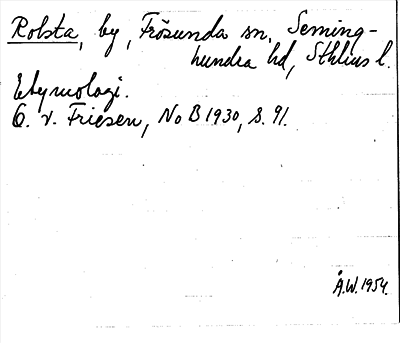 Robsta, by, Frösunda sn, Seming-
hundra hd, Sthlms l.
Etymologi.
O. v. Friesen, NoB 1930, s. 91.
Å.W. 1954.